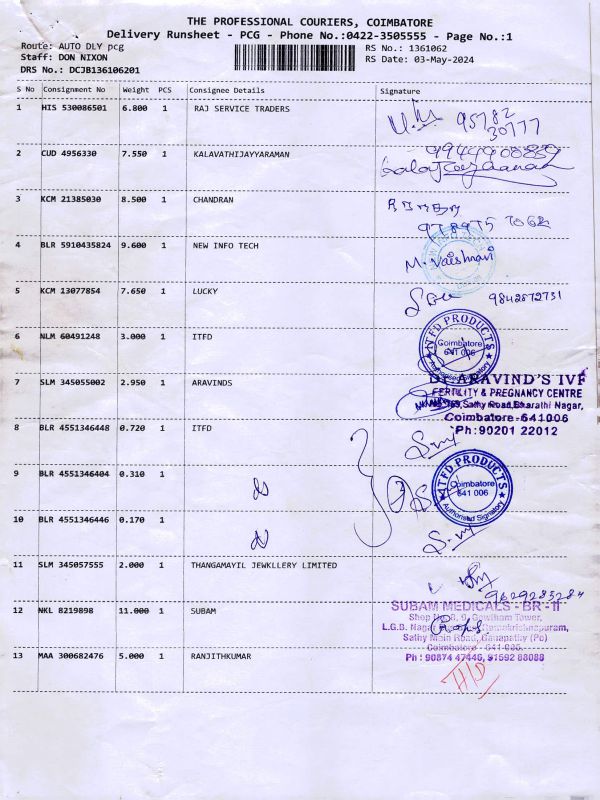 THE PROFESSIONAL COURIERS, COIMBATORE
Delivery Runsheet - PCG - Phone No.:0422-3505555 - Page No.:1
Route: AUTO DLY pcg
RS No.: 1361062
Staff: DON NIXON
RS Date: 03-May-2024
DRS No.: DCJB136106201
S No Consignment No Weight PCS Consignee Details Signature
1 HIS 530086501 6.800 1 RAJ SERVICE TRADERS
95782
30777
2 CUD 4956330 7.550 1 KALAVATHIJAYYARAMAN
3 KCM 21385030 8.500 1 CHANDRAN
4 BLR 5910435824 9.600 1 NEW INFO TECH
M. Vaishnavi
5 KCM 13077854 7.650 1 LUCKY
9842672731
6 NLM 60491248 3.000 1 ITFD
ITFD PRODUCTS
Coimbatore
641 006
Authorised Signatory
7 SLM 345055002 2.950 1 ARAVINDS
Dr ARAVIND'S IVF
FERTILITY & PREGNANCY CENTRE
Sathy Road, Bharathi Nagar,
Coimbatore - 641 006
Ph: 90201 22012
8 BLR 4551346448 0.720 1 ITFD
9 BLR 4551346404 0.310 1
ITFD PRODUCTS
Coimbatore
641 006
Authorised Signatory
10 BLR 4551346446 0.170 1
11 SLM 345057555 2.000 1 THANGAMAYIL JEWKLLERY LIMITED
9629283284
12 NKL 8219898 11.000 1 SUBAM
SUBAM MEDICALS - BR - II
Shop No. 8, 9, Gowtham Tower,
L.G.B. Nagar Ramakrishnapuram,
Sathy Main Road, Ganapathy (Po)
Coimbatore - 641 006.
Ph : 90874 47446, 91592 88088
13 MAA 300682476 5.000 1 RANJITHKUMAR